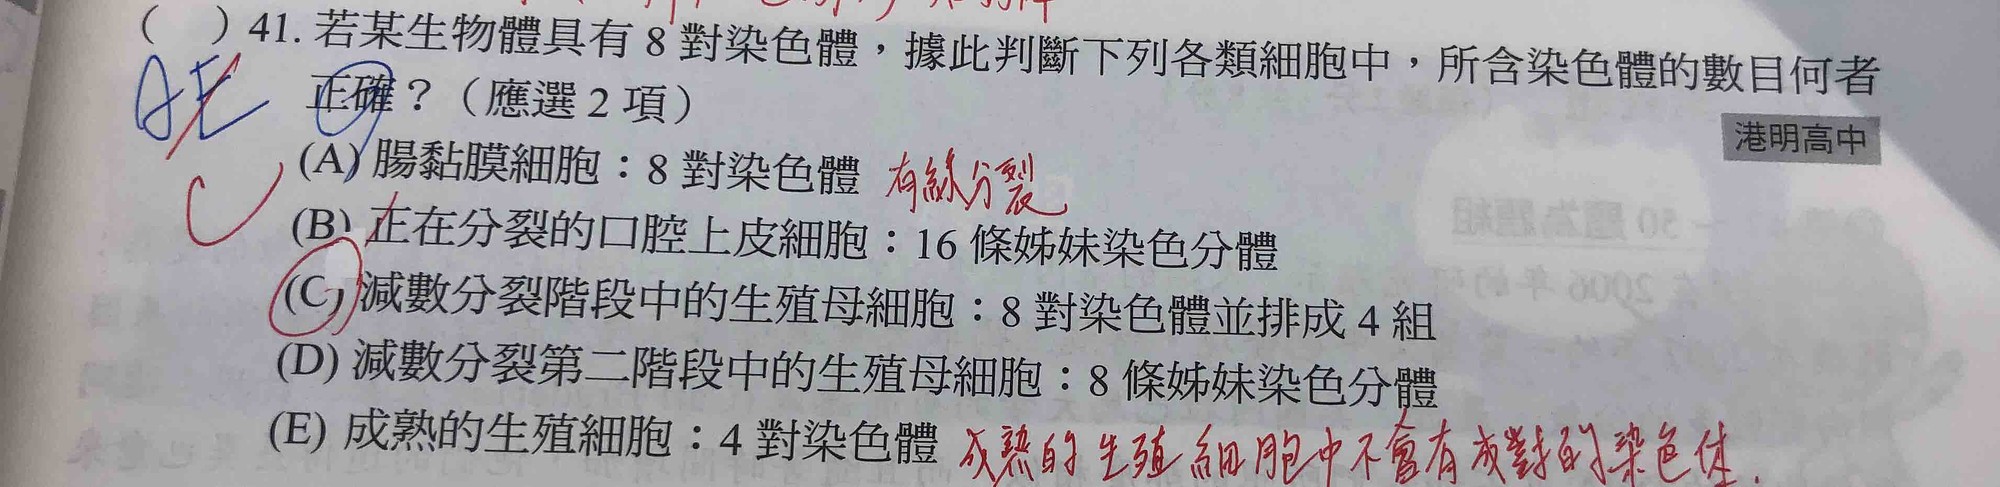 ( )41. 若某生物體具有 8 對染色體，據此判斷下列各類細胞中，所含染色體的數目何者
AE
正確？（應選 2 項）
港明高中
C
(A) 腸黏膜細胞：8 對染色體 有絲分裂
(B) 正在分裂的口腔上皮細胞：16 條姊妹染色分體
(C) 減數分裂階段中的生殖母細胞：8 對染色體並排成 4 組
(D) 減數分裂第二階段中的生殖母細胞：8 條姊妹染色分體
(E) 成熟的生殖細胞：4 對染色體 成熟的生殖細胞中不會有成對的染色体.
～50 題為題組
在 2006 年的研究